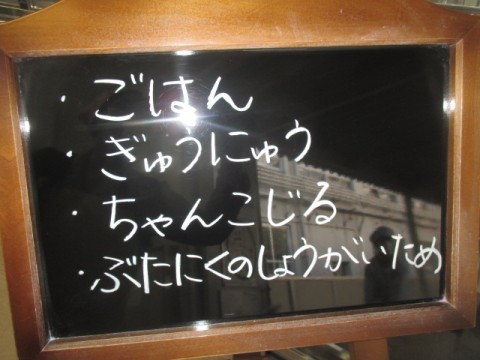 ・ごはん
・ぎゅうにゅう
・ちゃんこじる
・ぶたにくのしょうがいため